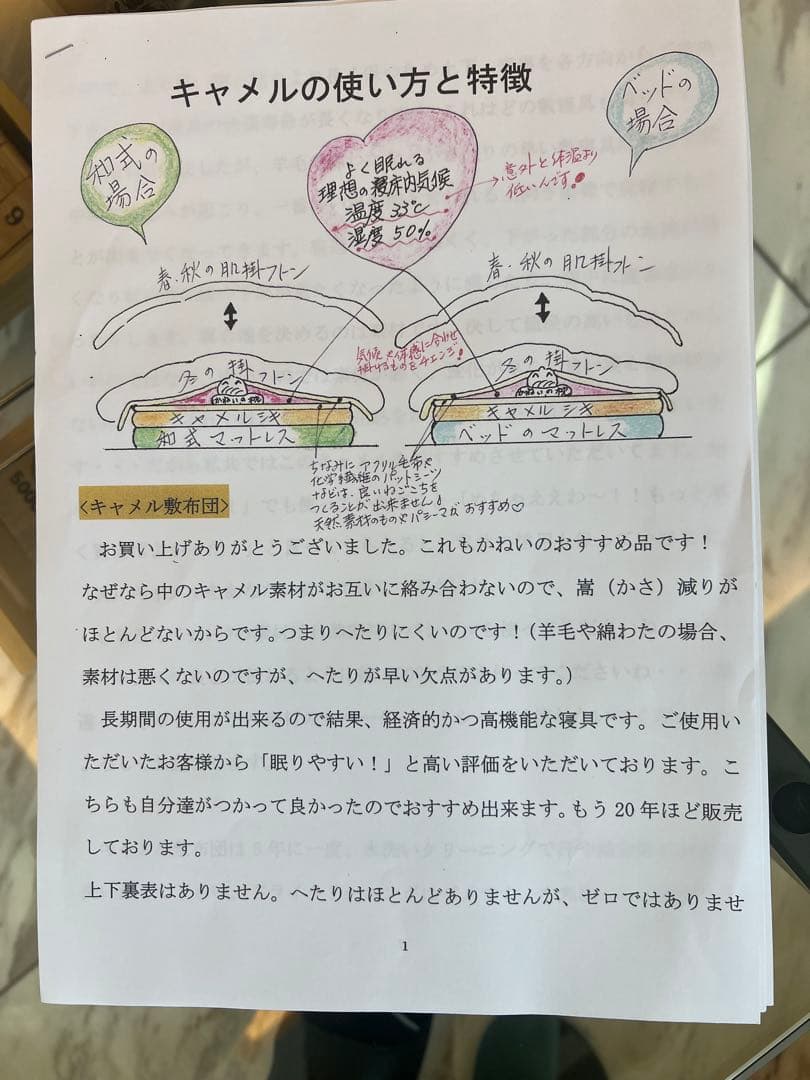 キャメルの使い方と特徴
和式の
場合
ベッドの
場合
よく眠れる
理想の寝床内気候
温度33℃
湿度50%
意外と体温より
低いんです!
春・秋の肌掛フトン
春・秋の肌掛フトン
気候や体感に合わせ
掛けるものをチェンジ!
冬の掛フトン
かねいの枕
キャメルシキ
和式マットレス
冬の掛フトン
かねいの枕
キャメルシキ
ベッドのマットレス
ちなみにアクリル毛布や
化学繊維のパットシーツ
などは、良いねごこちを
つくることが出来ません!
天然素材のものやパシーマがおすすめ♡
<キャメル敷布団>
お買い上げありがとうございました。これもかねいのおすすめ品です!
なぜなら中のキャメル素材がお互いに絡み合わないので、嵩(かさ)減りが
ほとんどないからです。つまりへたりにくいのです!(羊毛や綿わたの場合、
素材は悪くないのですが、へたりが早い欠点があります。)
長期間の使用が出来るので結果、経済的かつ高機能な寝具です。ご使用い
ただいたお客様から「眠りやすい!」と高い評価をいただいております。こ
ちらも自分達がつかって良かったのでおすすめ出来ます。もう20年ほど販売
しております。
上下裏表はありません。へたりはほとんどありませんが、ゼロではありませ
1
9